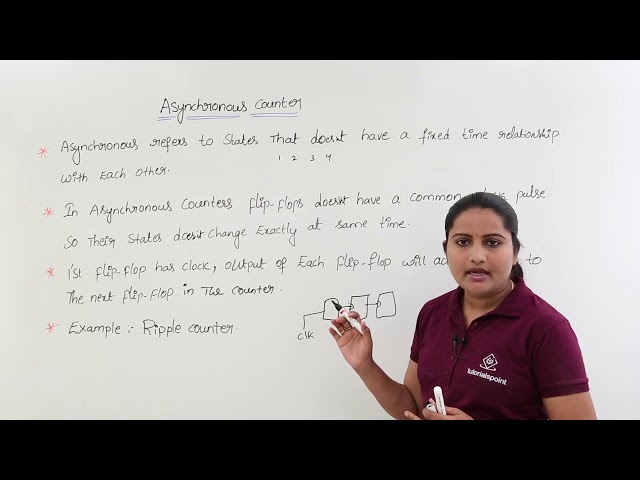 Asynchronous Counter
* Asynchronous refers to States That doesn't have a fixed time relationship
1 2 3 4
with Each other.
* In Asynchronous Counters flip-flops doesn't have a common pulse.
So Their States doesn't Change Exactly at same time.
* 1'st flip-flop has clock, output of Each flip-flop will to
The next flip-flop in The counter.
* Example :- Ripple counter.
Clk
tutorialspoint